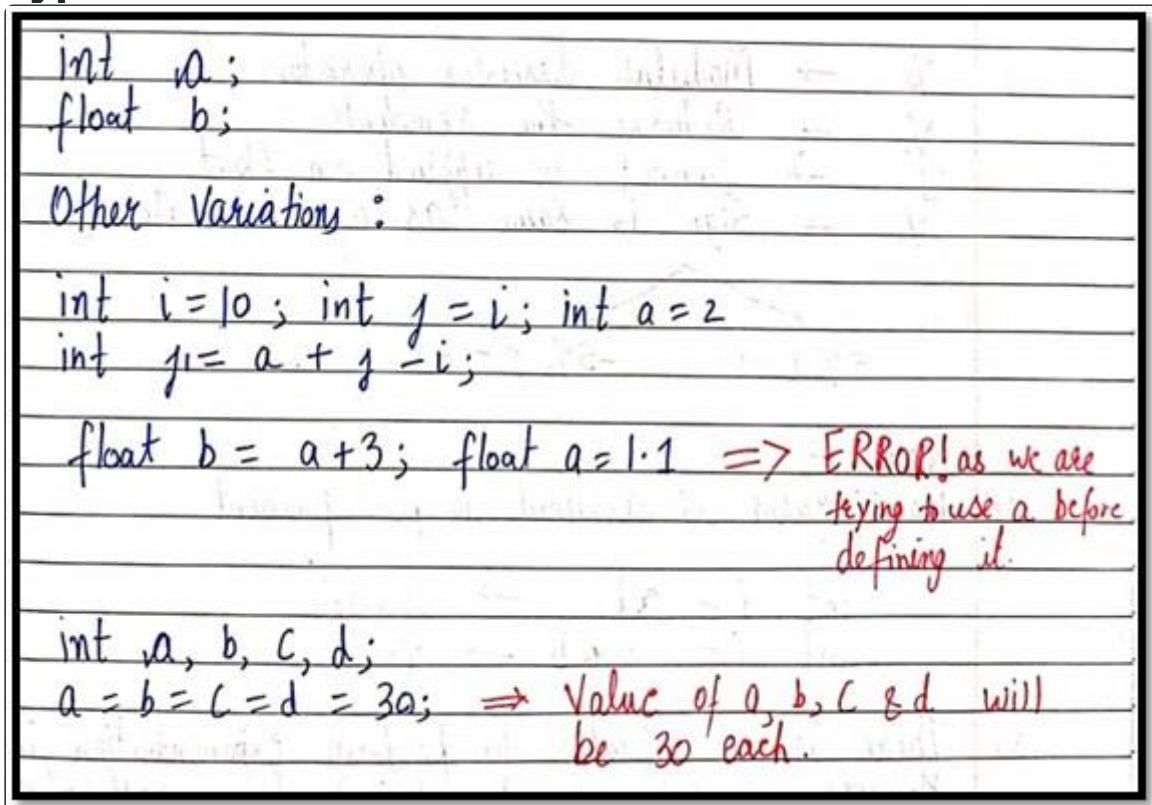 int a;
float b;
Other Variations :
int i = 10; int j = i; int a = 2
int j1 = a + j - i;
float b = a+3; float a = 1.1 => ERROR! as we are
trying to use a before
defining it.
int a, b, c, d;
a = b = c = d = 30; => Value of a, b, c & d will
be 30 each.